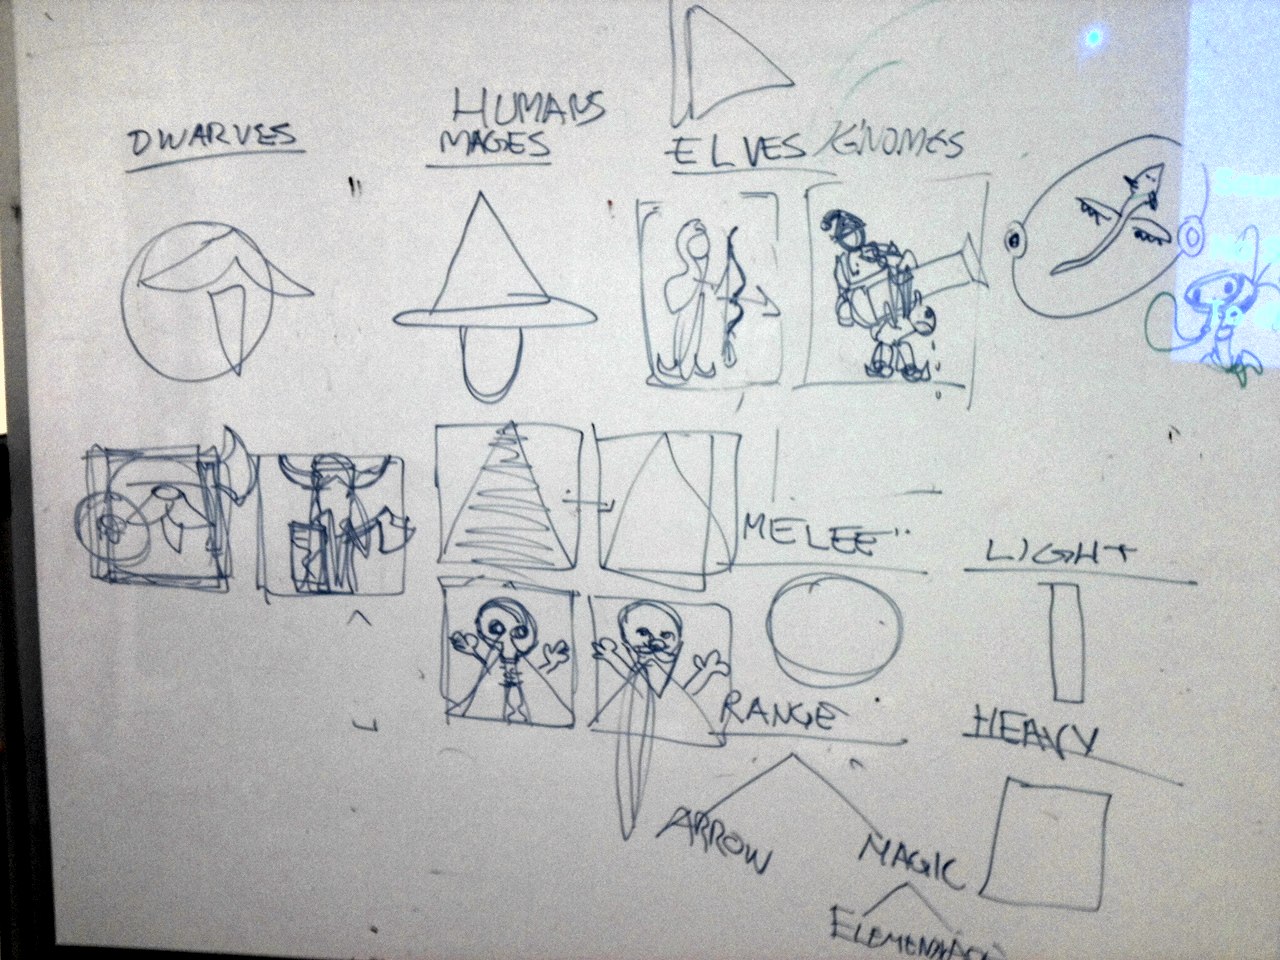 DWARVES
HUMANS
MAGES
ELVES / GNOMES
MELEE
LIGHT
RANGE
HEAVY
ARROW
MAGIC